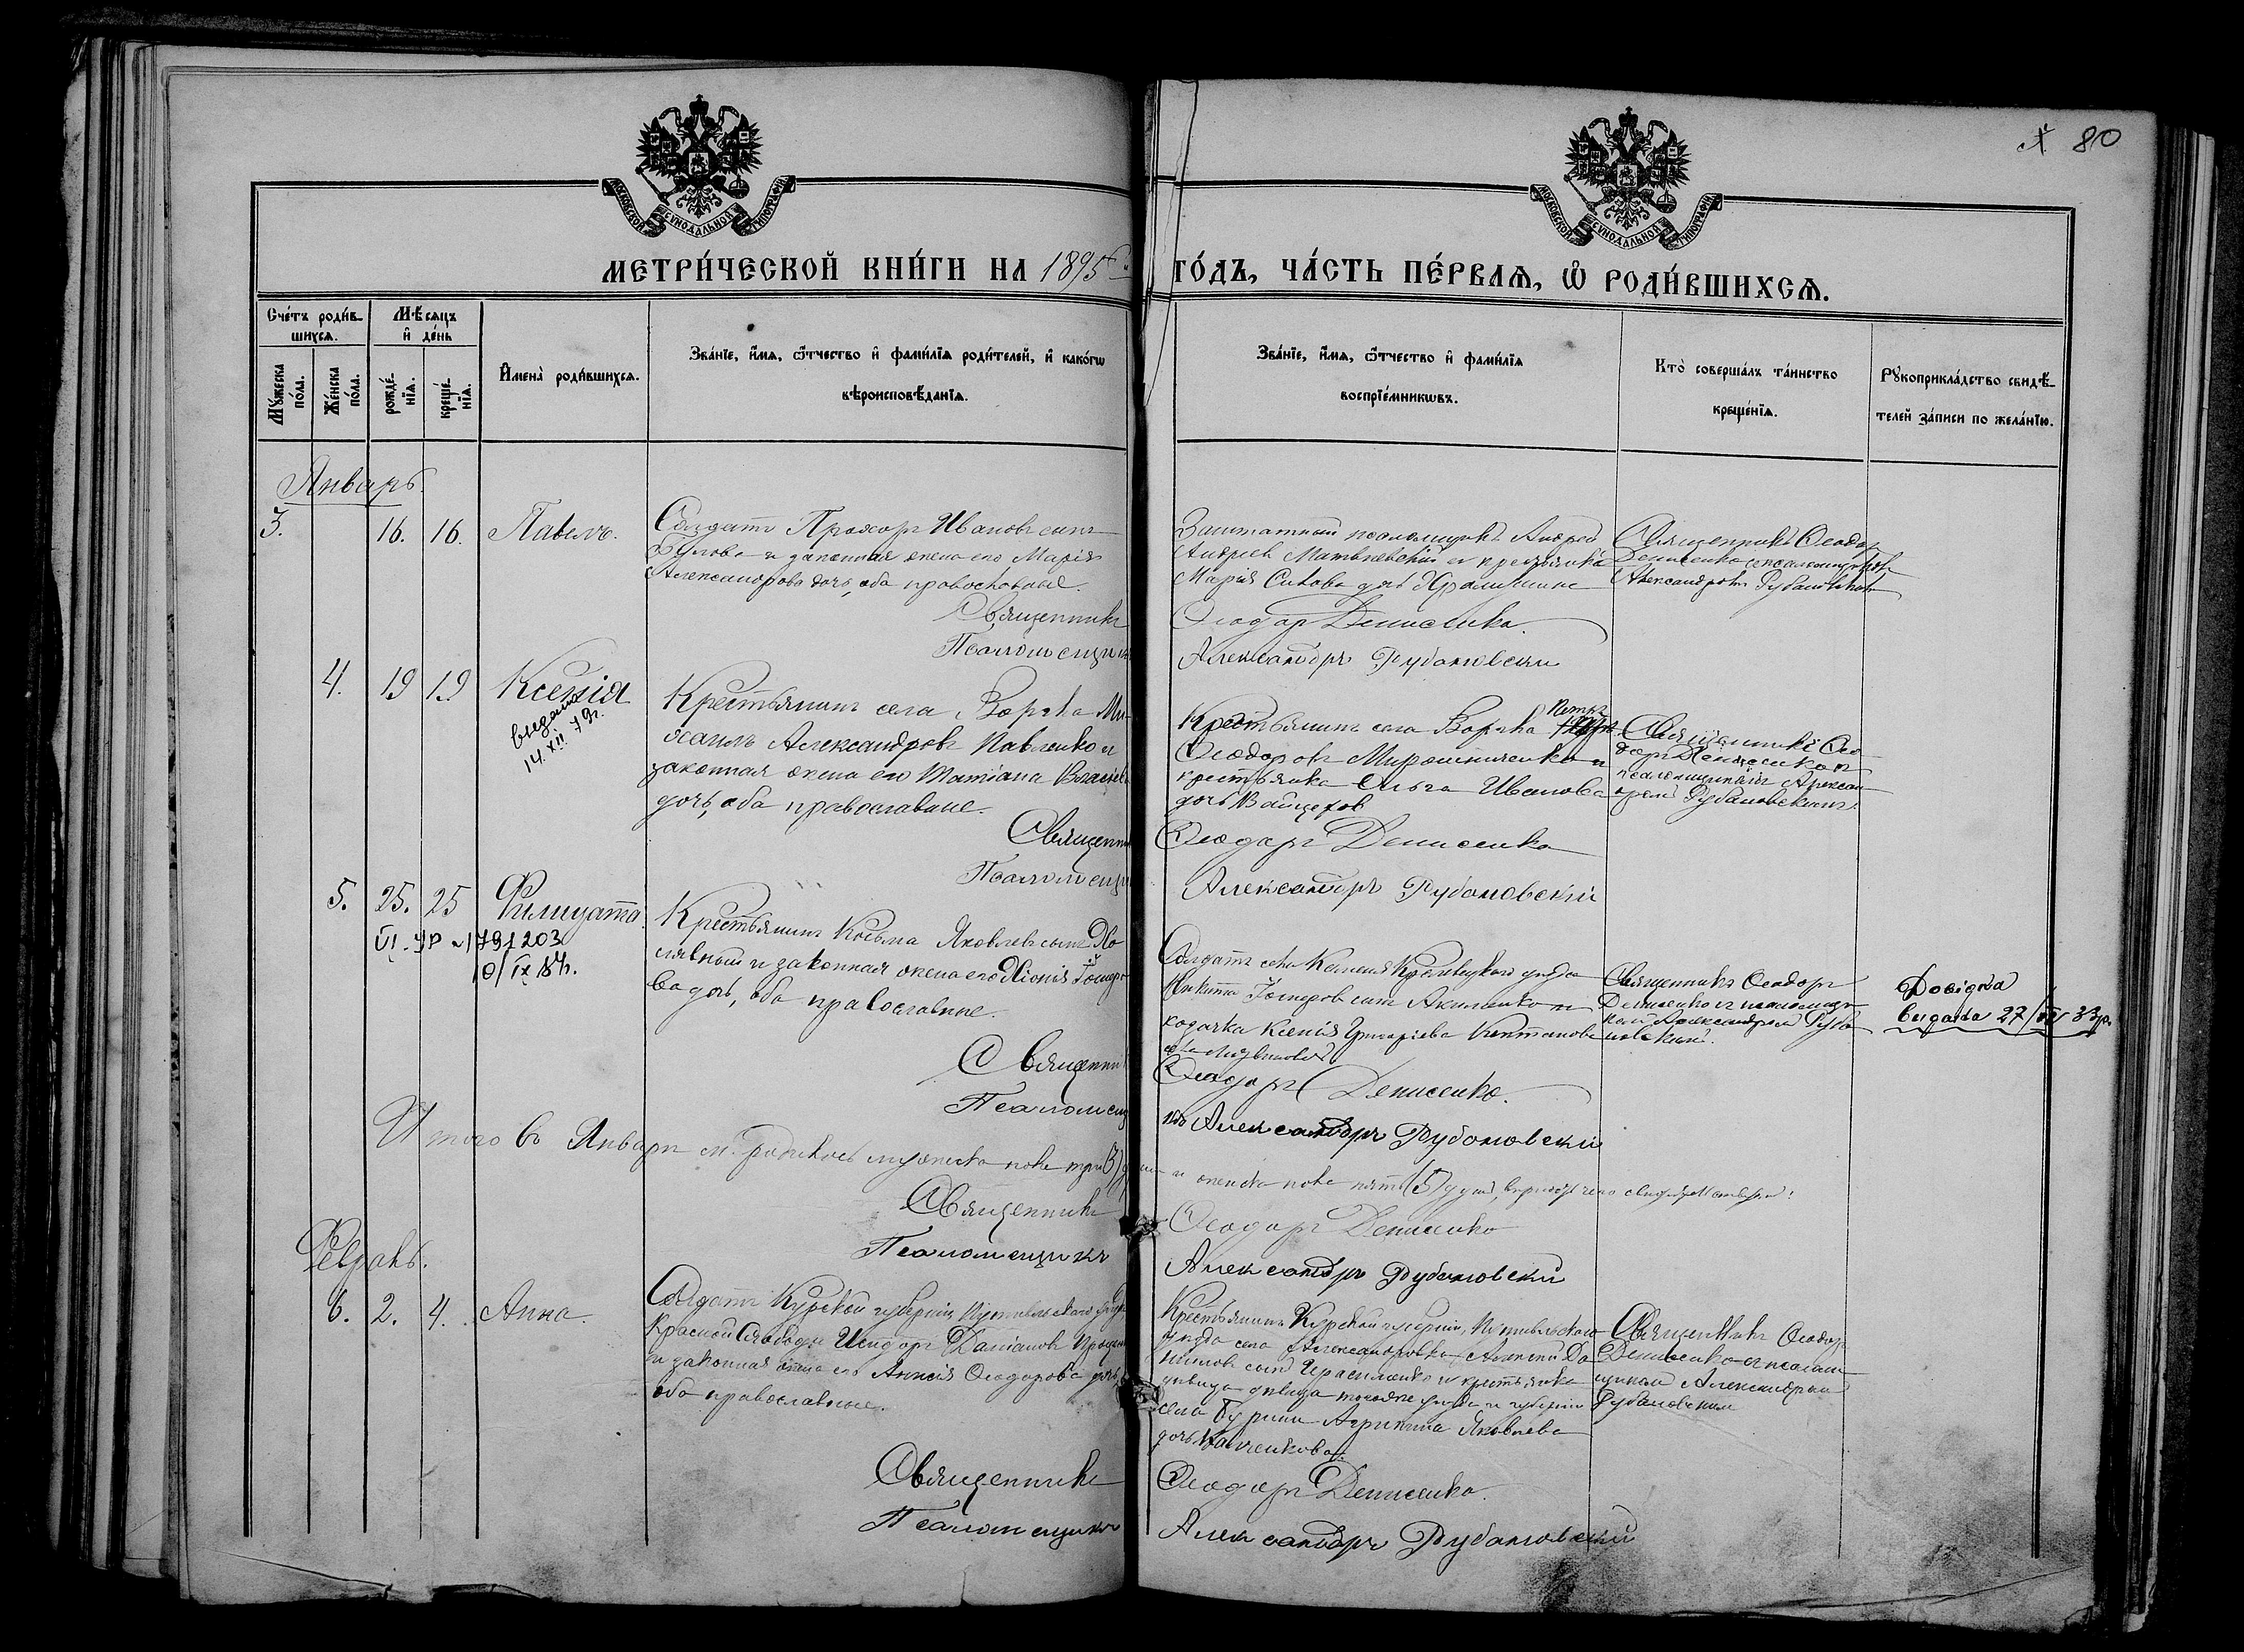 л. 80
МОСКОВСКОЙ СУНОДАЛЬНОЙ ТИПОГРАФІИ
МОСКОВСКОЙ СУНОДАЛЬНОЙ ТИПОГРАФІИ
МЕТРИ́ЧЕСКОЙ КНИ́ГИ НА 1895 ГО́ДЪ, ЧА́СТЬ ПЕ́РВАѦ, Ѡ РОДИ́ВШИХСѦ.
Сче́тъ роди́в-
шихсѧ.
Му́жеска по́ла.
Же́нска по́ла.
Мѣ́сѧцъ и де́нь
рожде́-нїѧ.
креще́-нїѧ.
И҆мена̀ роди́вшихсѧ.
Зва́нїе, и҆́мѧ, ѻ҆́тчество и҆ фами́лїѧ роди́телей, и҆ како́гѡ
вѣроисповѣ́данїѧ.
Зва́нїе, и҆́мѧ, ѻ҆́тчество и҆ фами́лїѧ
воспрїе́мникѡвъ.
Кто̀ соверша́лъ та́инство
креще́нїѧ.
Рꙋкоприкла́дство свидѣ́-
телей за́писи по жела́нїю.
Январь.
3. 16. 16. Павелъ.
Солдатъ Прохоръ Ивановъ сынъ
и законная жена его Марія
Александрова дочь, оба православные.
Священникъ
Псаломщик
Заштатный псаломщикъ Андрей
Андреев Матвѣевскій и крестьянка
Марія Савова дочь
Ѳеодоръ Денисенко.
Александръ Рубановскій
Священникъ Ѳеодоръ
Денисенко с псаломщикомъ
Александромъ Рубановскимъ
4. 19 19 Ксенія
выдано
14.XII.79г.
Крестьянинъ села Воргла Ми-
хаилъ Александровъ Павленко и
законная жена его Татіана Власіева
дочь, оба православные.
Священни
Псаломщи
Петръ
Крестьянинъ села Воргла
Ѳеодоровъ Мирошниченко и
крестьянка Ольга Иванова
дочь
Ѳеодоръ Денисенко
Александръ Рубановскій
Священникъ Ѳео-
доръ Денисенко с
псаломщикомъ Алексан-
дромъ Рубановскимъ.
5. 25. 25 Филицата.
VI-УР №791203
10/IX 84г.
Крестьянинъ Косьма Яковлевъ сынъ
и законная жена его
ва дочь, оба православные.
Священни
Псаломщ
Солдатъ села Кролевецкого уѣзда
Никита сынъ Акименко и
козачка Ксенія Григоріева
Ѳеодоръ Денисенко.
Александръ Рубановскій
Священникъ Ѳеодоръ
Денисенко с псаломщи-
комъ Александромъ Руба-
новскимъ.
Довідка
видана 27/VII 33р.
Итого въ Январѣ м. родилось мужеска пола три (3) и женска пола пять (5) душ,
Священникъ Ѳеодоръ Денисенко
Псаломщикъ Александръ Рубановскій
Февраль.
6. 2. 4. Анна.
Солдатъ Курской губерніи Путивльскаго уѣзда
Красной Слободы Исидоръ Даміановъ
и законная жена его Анисія Ѳеодорова дочь,
оба православные.
Священникъ
Псаломщикъ
Крестьянинъ Курской губерніи, Путивльскаго
уѣзда села Александровка
сынъ Герасименко и крестьянка
дѣвица уѣзда и губерніи
села Бурыни Агрипина Яковлева
дочь
Ѳеодоръ Денисенко.
Александръ Рубановскій
Священникъ Ѳеодоръ
Денисенко с псалом-
щикомъ Александромъ
Рубановскимъ